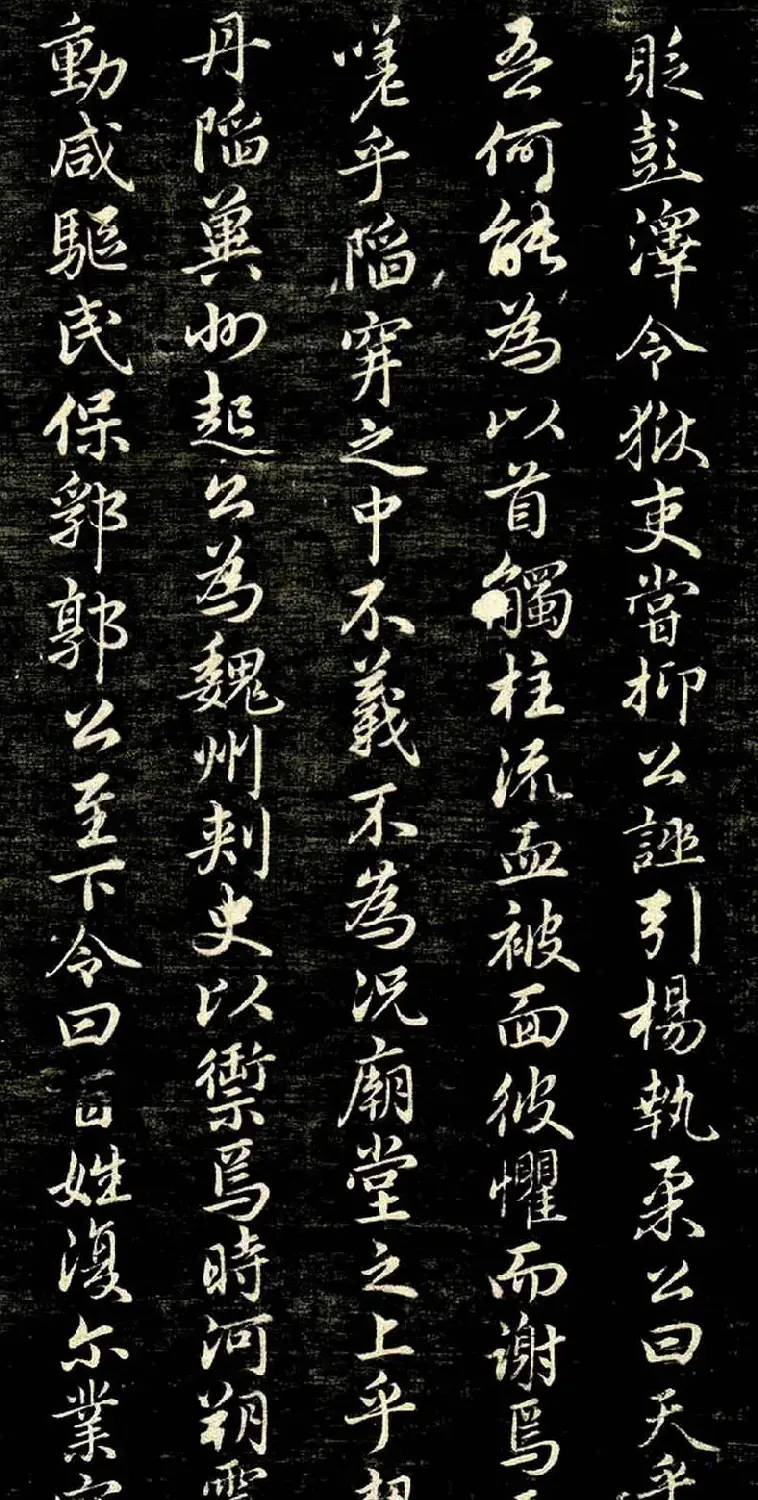 貶彭澤令獄吏嘗抑公誣引楊執柔公曰天乎
吾何能為以首觸柱流血被面彼懼而謝焉
嗟乎陷穽之中不義不為況廟堂之上乎契
丹陷冀州起公為魏州刺史以禦焉時河朔震
動咸驅民保郛郭公至下令曰百姓復尔業